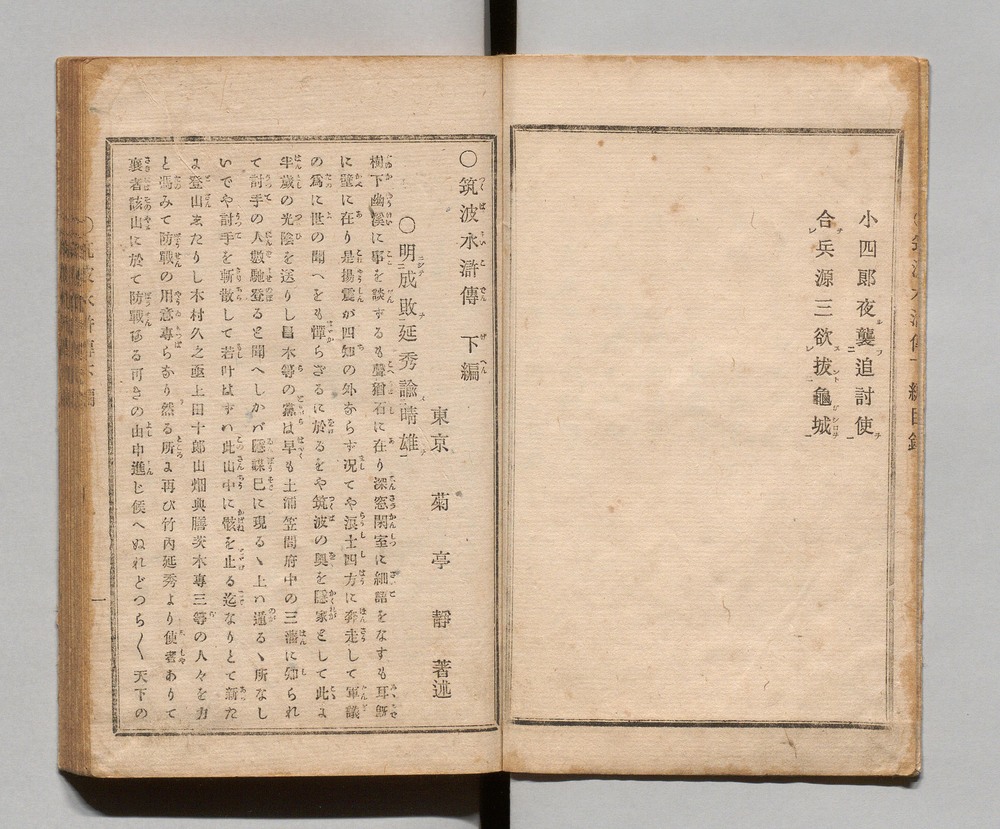 小四郎夜襲追討使
合兵源三欲拔龜城
○筑波水滸傳 下編
東京 菊亭靜 著述
○明成敗延秀諭晴雄
樹下幽溪に事を談ずるも聲猶石に在り深窓閑室に細語をなすも耳既
に壁に在り是揚震が四知の外ならず况てや浪士四方に奔走して軍議
の爲に世の聞へをも憚らざるに於るをや筑波の奧を隱家として此よ
半歳の光陰を送りし田木等の黨は早も土浦笠間府中の三藩に知られ
て討手の人數馳登ると聞へしかバ隱謀已に現るゝ上ハ遁るゝ所なし
いでや討手を斬散して若叶はずハ此山中に骸を止る迄なりとて新た
よ登山ゑたりし木村久之亟上田十郎山畑與膳茨木專三等の人々を力
と憑みて防戰の用意專らなり然る所よ再び竹內延秀より使者ありて
襄者該山に於て防戰ある可きの山中進じ候へぬれどつら〱天下の
一